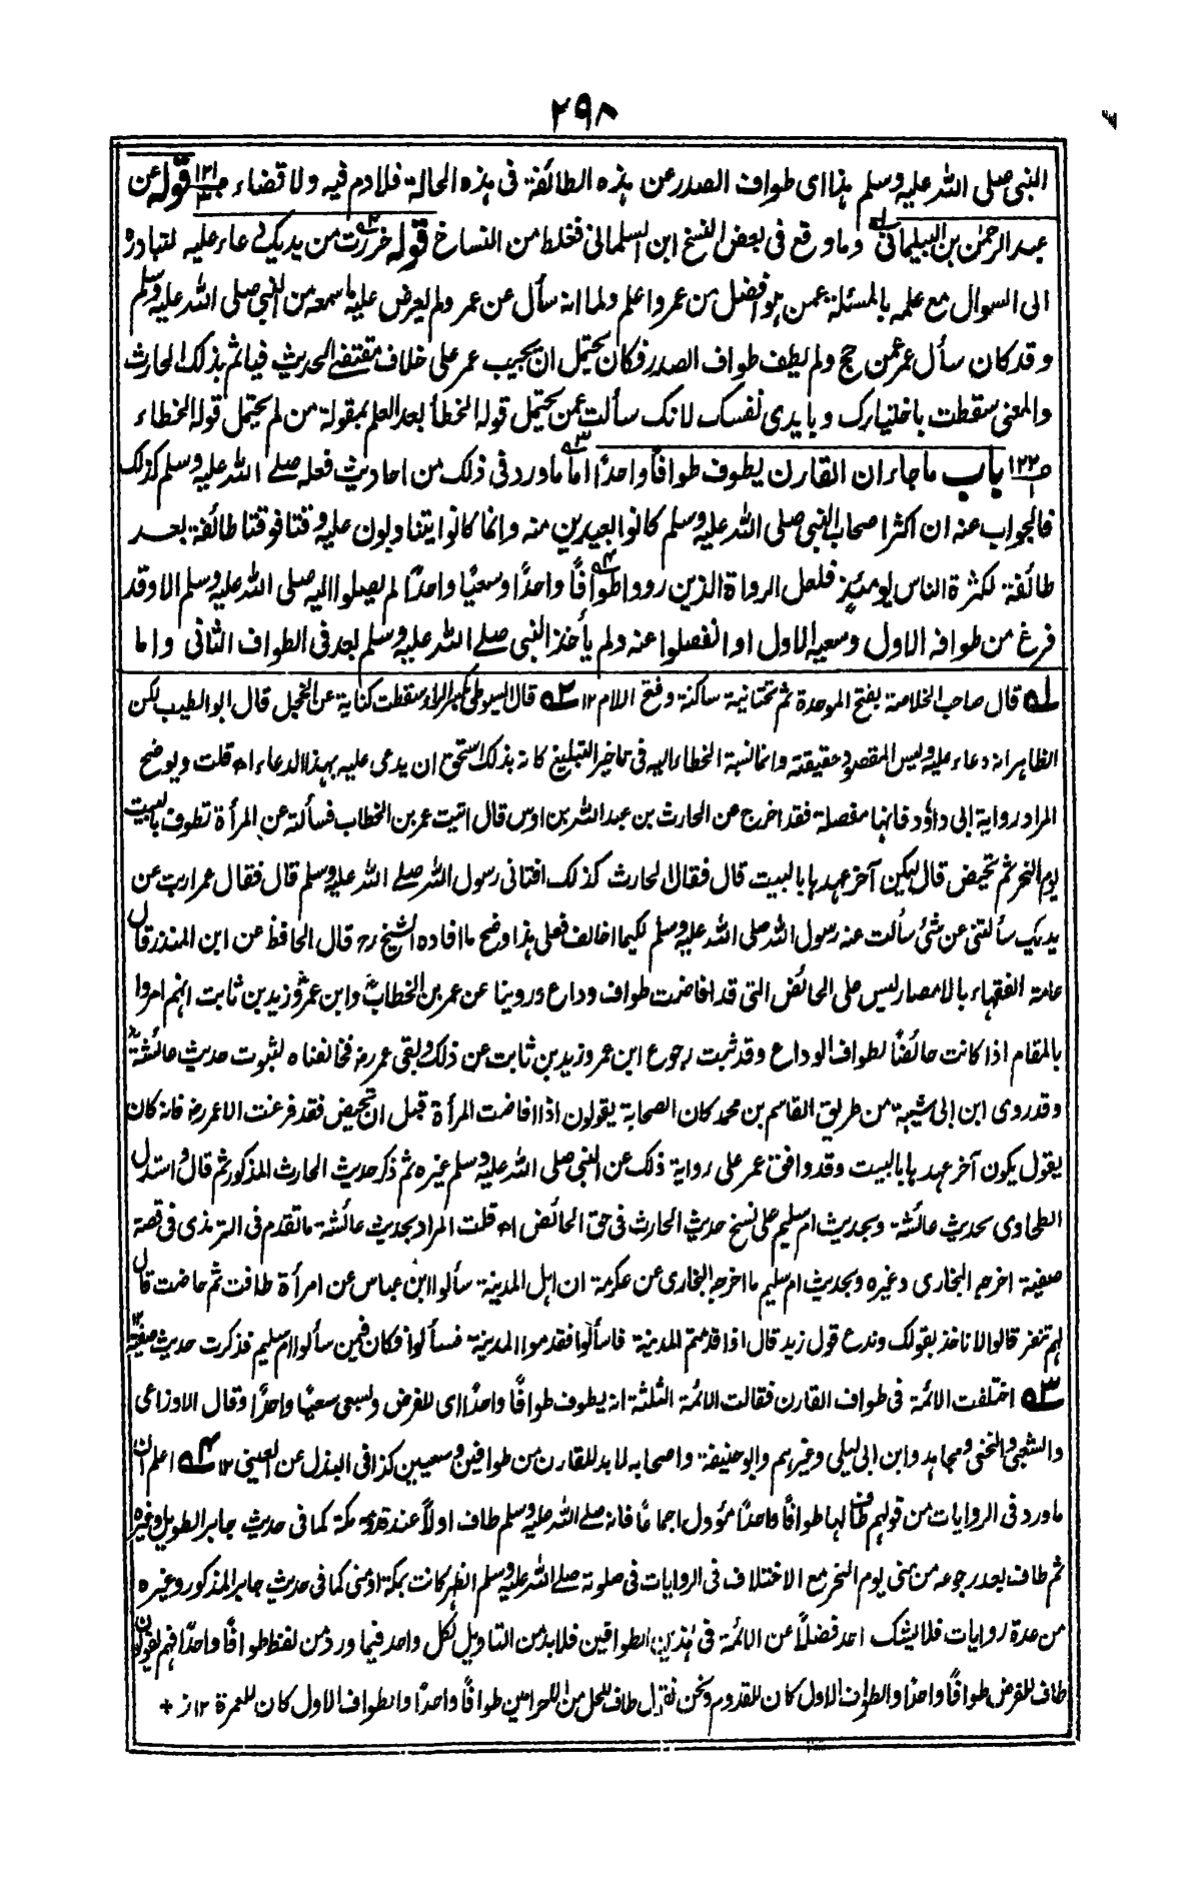 ٢٩٨
النبى صلى الله عليه وسلم هذا اى طواف الصدر عن هذه الطائفة فى هذه الحالة فلا دم فيه ولا قضاء صـ١٢١ قوله عن
عبد الرحمٰن بن البيلمانى ١ه وما وقع فى بعض النسخ ابن السلمانى فغلط من النساخ قوله خررت ٢ه من يديك دعاء عليه لتبادره
الى السوال مع علمه بالمسئلة عمن هو افضل من عمر واعلم ولما انه سأل عن عمر ولم يعرض عليه ما سمعه من النبى صلى الله عليه وسلم
وقد كان سأل عمر عمن حج ولم يطف طواف الصدر فكان يحتمل ان يجيب عمر على خلاف مقتضے الحديث فياثم بذلك الحارث
والمعنى سقطت باختيارك وبايدى نفسك لانك سألت عمن يحتمل قوله الخطأ بعد العلم بمقولة من لم يحتمل قوله الخطاء
صـ١٢٢ باب ما جاء ان القارن يطوف طوافًا واحدًا ٣ه اما ما ورد فى ذلك من احاديث فعله صلے الله عليه وسلم كذلك
فالجواب عنه ان اكثر اصحاب النبى صلى الله عليه وسلم كانوا بعيدين منه وانما كانوا يتناوبون عليه وقتا فوقتا طائفة بعد
طائفة لكثرة الناس يومئذٍ فلعل الرواة الذين رووا طوافًا ٤ه واحدًا وسعيًا واحدًا لم يصلوا اليه صلى الله عليه وسلم الا وقد
فرغ من طوافه الاول وسعيه الاول او انفصلوا عنه ولم يأخذ النبى صلے الله عليه وسلم بعد فى الطواف الثانى واما
١ه قال صاحب الخلاصة بفتح الموحدة ثم تحتانية ساكنة وفتح اللام ١٢ ٢ه قال السيوطى بكسر الراء سقطت كناية عن الخجل قال ابو الطيب لكن
الظاهر انه دعاء عليه وليس المقصود حقيقته وانما نسبة الخطاء اليه فى تاخير التبليغ كانه بذلك استحق ان يدعى عليه بهذا الدعاء اھ قلت ويوضح
المراد رواية ابى داؤد فانها مفصلة فقد اخرج عن الحارث بن عبد الله بن اوس قال اتيت عمر بن الخطاب فسألته عن المرأة تطوف بالبيت
يوم النحر ثم تحيض قال ليكن آخر عهدها بالبيت قال فقال الحارث كذلك افتانى رسول الله صلے الله عليه وسلم قال فقال عمر اربت عن
يديك سألتنى عن شئ سألت عنه رسول الله صلى الله عليه وسلم لكيما اخالف فعلى هذا وضح ما افاده الشيخ رح قال الحافظ عن ابن المنذر قال
عامة الفقهاء بالامصار ليس على الحائض التى قد افاضت طواف وداع وروينا عن عمر بن الخطاب وابن عمر وزيد بن ثابت انهم امروا
بالمقام اذا كانت حائضًا لطواف الوداع وقد ثبت رجوع ابن عمر وزيد بن ثابت عن ذلك وبقى عمر رض فخالفناه لثبوت حديث عائشة
وقد روى ابن ابى شيبة من طريق القاسم بن محمد كان الصحابة يقولون اذا افاضت المرأة قبل ان تحيض فقد فرغت الا عمر رض فانه كان
يقول يكون آخر عهدها بالبيت وقد وافق عمر على رواية ذلك عن النبى صلى الله عليه وسلم غيره ثم ذكر حديث الحارث المذكور ثم قال واستدل
الطحاوى بحديث عائشة وبحديث ام سليم على نسخ حديث الحارث فى حق الحائض اھ قلت المراد بحديث عائشة ما تقدم فى الترمذى فى قصة
صفية اخرجه البخارى وغيره وبحديث ام سليم ما اخرجه البخارى عن عكرمة ان اهل المدينة سألوا ابن عباس عن امرأة طافت ثم حاضت قال
لهم تنفر قالوا لا ناخذ بقولك وندع قول زيد قال اذا قدمتم المدينة فاسألوا فقدموا المدينة فسألوا فكان فيمن سألوا ام سليم فذكرت حديث صفية ١٢
٣ه اختلفت الائمة فى طواف القارن فقالت الائمة الثلثة انه يطوف طوافًا واحدًا اى للفرض ويسعى سعيًا واحدًا وقال الاوزاعى
والشعبى والنخعى ومجاهد وابن ابى ليلى وغيرهم وابو حنيفة واصحابه لا بد للقارن من طوافين وسعيين كذا فى البذل عن العينى ١٢ ٤ه اعلم ان
ما ورد فى الروايات من قولهم طاف لهما طوافًا واحدًا مؤول اجماعًا فانه صلے الله عليه وسلم طاف اولاً عند قدومه مكة كما فى حديث جابر الطويل وغيره
ثم طاف بعد رجوعه من منى يوم النحر مع الاختلاف فى الروايات فى صلوته صلے الله عليه وسلم الظهر كانت بمكة او منى كما فى حديث جابر المذكور وغيره
من عدة روايات فلا يشك احد فضلاً عن الائمة فى هذين الطوافين فلا بد من التاويل لكل واحد فيما ورد من لفظ طوافًا واحدًا فهم يقولون
طاف للفرض طوافًا واحدًا والطواف الاول كان للقدوم ونحن نقول طاف للحل من الاحرامين طوافًا واحدًا والطواف الاول كان للعمرة ١٢ ز +